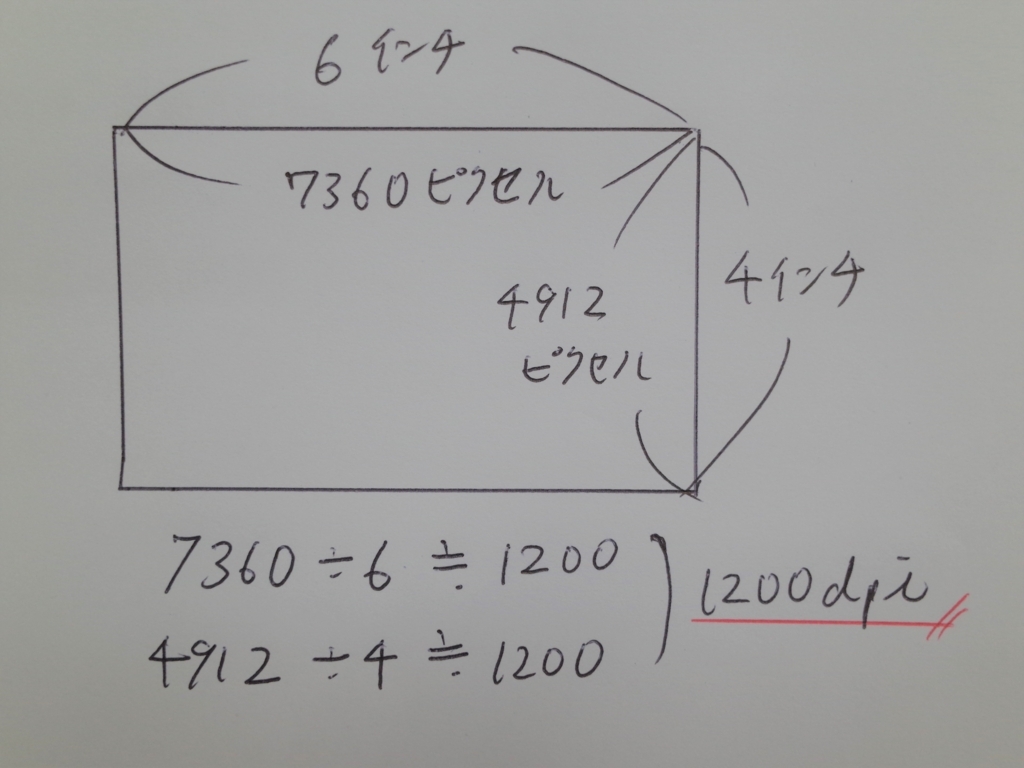 6 インチ
7360ピクセル
4912
ピクセル
4インチ
7360÷6≒1200
4912÷4≒1200
1200dpi